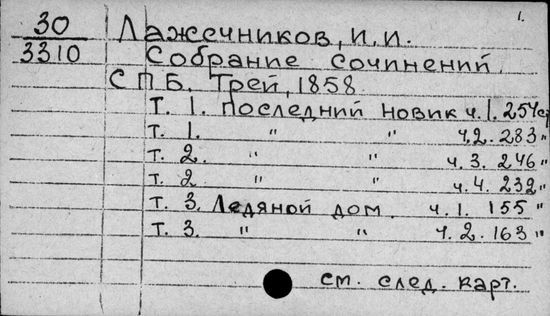 30 Лажечников, И. И. 1.
3310 Собрание сочинений.
СПБ. Трей, 1858.
Т. 1. Последний новик ч. 1. 254 ст
Т. 1. " " ч. 2. 283 "
Т. 2. " " ч. 3. 246 "
Т. 2 " " ч. 4. 232 "
Т. 3. Ледяной дом. ч. 1. 155 "
Т. 3. " " ч. 2. 163 "
см. след. карт.